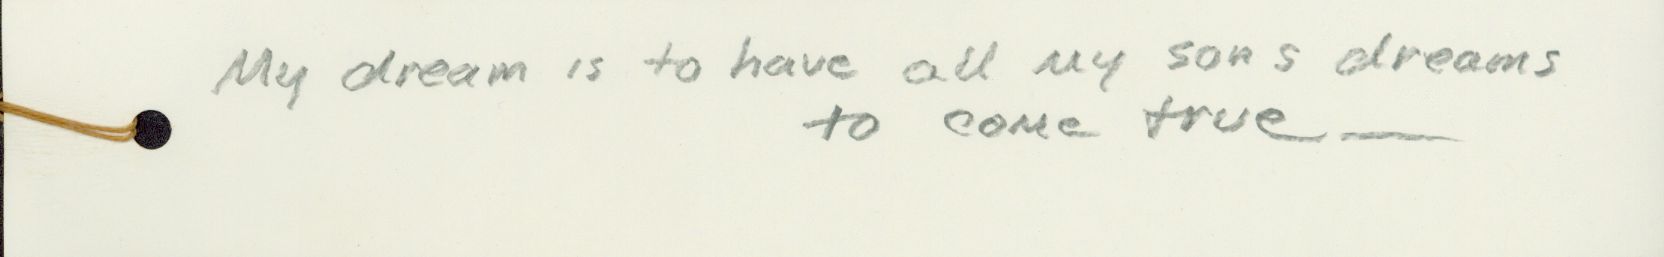 My dream is to have all my sons dreams
to come true —